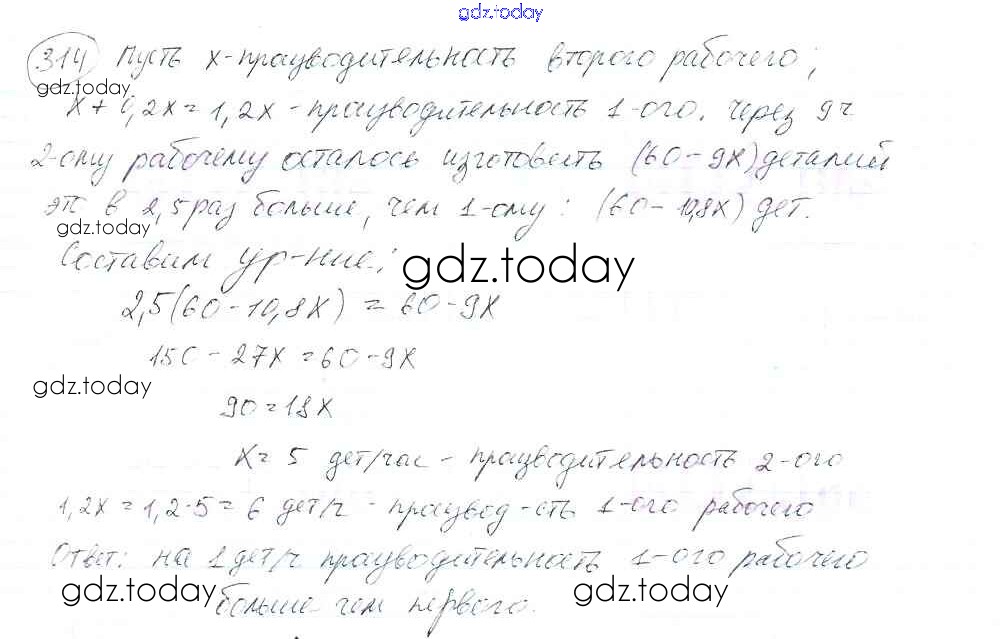 gdz.today
314 Пусть x - прозводительность второго рабочего;
gdz.today
x + 0,2x = 1,2x - производительность 1-ого. Через 9 ч
2-ому рабочему осталось изготовить (60 - 9x) деталий
это в 2,5 раз больше, чем 1-ому: (60 - 10,8x) дет.
gdz.today
Составим ур-ние:
gdz.today
2,5(60 - 10,8x) = 60 - 9x
150 - 27x = 60 - 9x
gdz.today
90 = 18x
x = 5 дет/час - производительность 2-ого
1,2x = 1,2·5 = 6 дет/ч - производ-сть 1-ого рабочего
Ответ: на 1 дет/ч производительность 1-ого рабочего
gdz.today gdz.today
больше чем первого.